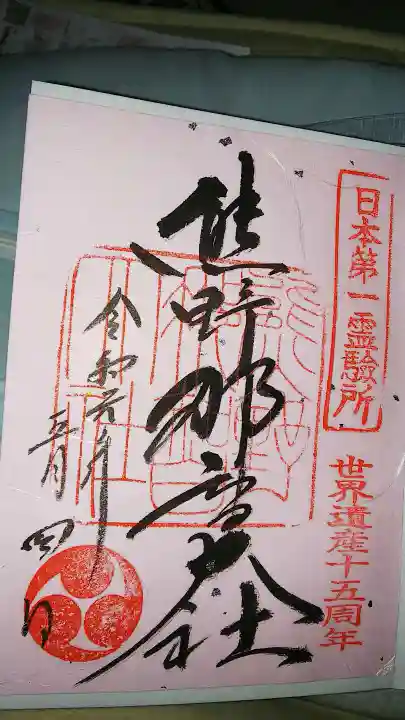 日本第一靈驗所
世界遺産十五周年
熊野那智大社
令和元年
五月四日